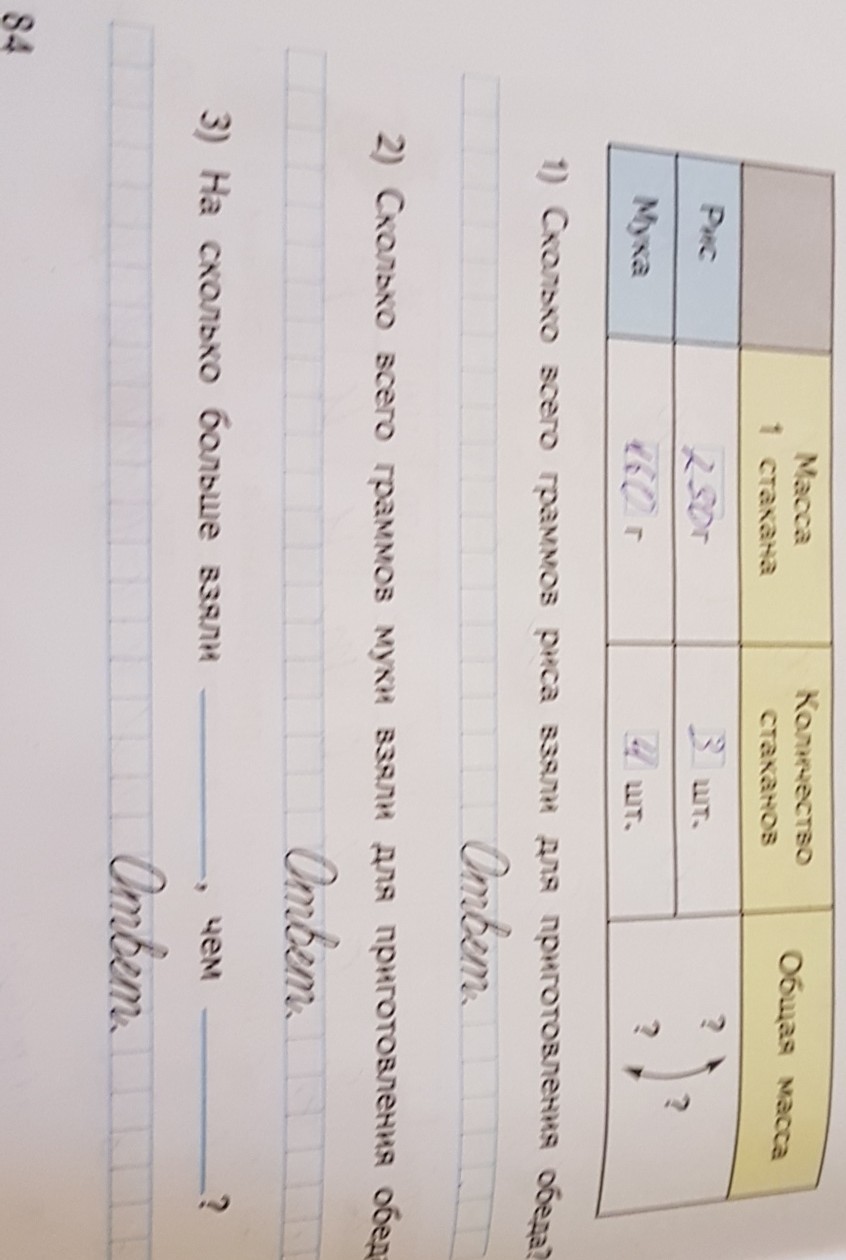 Масса 1 стакана Количество стаканов Общая масса
Рис г 3 шт. ?
Мука г 4 шт. ? ?
1) Сколько всего граммов риса взяли для приготовления обеда?
Ответ:
2) Сколько всего граммов муки взяли для приготовления обед
Ответ:
3) На сколько больше взяли ________, чем ________?
Ответ:
84